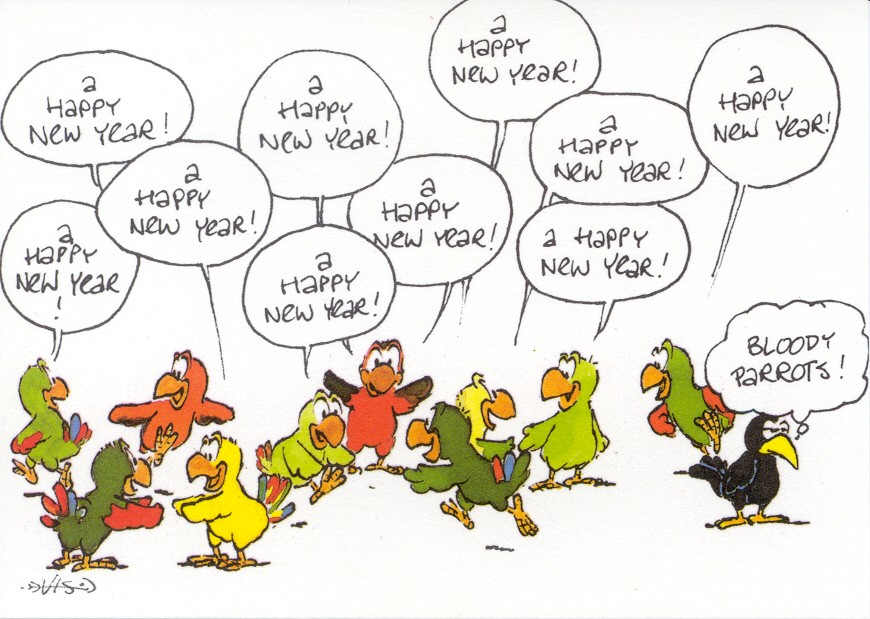 a
Happy
New Year!
a
Happy
New Year!
a
Happy
New Year!
a
Happy
New Year!
a
Happy
New Year!
a
Happy
New Year!
a
Happy
New Year!
a
Happy
New Year
!
a Happy
New Year!
a
Happy
New Year!
BLOODY
PARROTS!